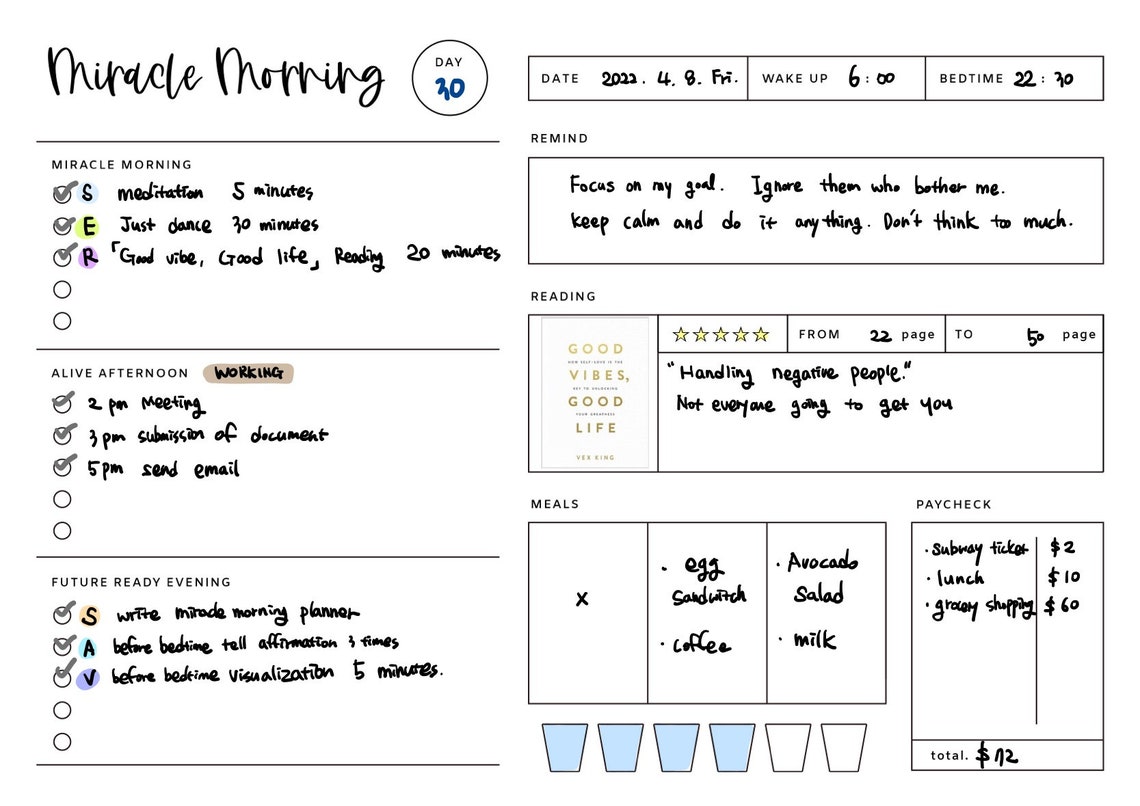 Miracle Morning
DAY
30
DATE 2022. 4. 8. Fri.
WAKE UP 6:00
BEDTIME 22:30
MIRACLE MORNING
S meditation 5 minutes
E Just dance 30 minutes
R 「Good vibe, Good life」 Reading 20 minutes
ALIVE AFTERNOON WORKING
2 pm Meeting
3 pm submission of document
5 pm send email
FUTURE READY EVENING
S write miracle morning planner
A before bedtime tell affirmation 3 times
V before bedtime visualization 5 minutes.
REMIND
Focus on my goal. Ignore them who bother me.
keep calm and do it anything. Don't think too much.
READING
GOOD
HOW SELF-LOVE IS THE
VIBES,
KEY TO UNLOCKING
GOOD
YOUR GREATNESS
LIFE
VEX KING
FROM 22 page
TO 50 page
"Handling negative people."
Not everyone going to get you
MEALS
x
· egg
Sandwitch
· coffee
· Avocado
Salad
· milk
PAYCHECK
· subway ticket $2
· lunch $10
· grocery shopping $60
total. $72